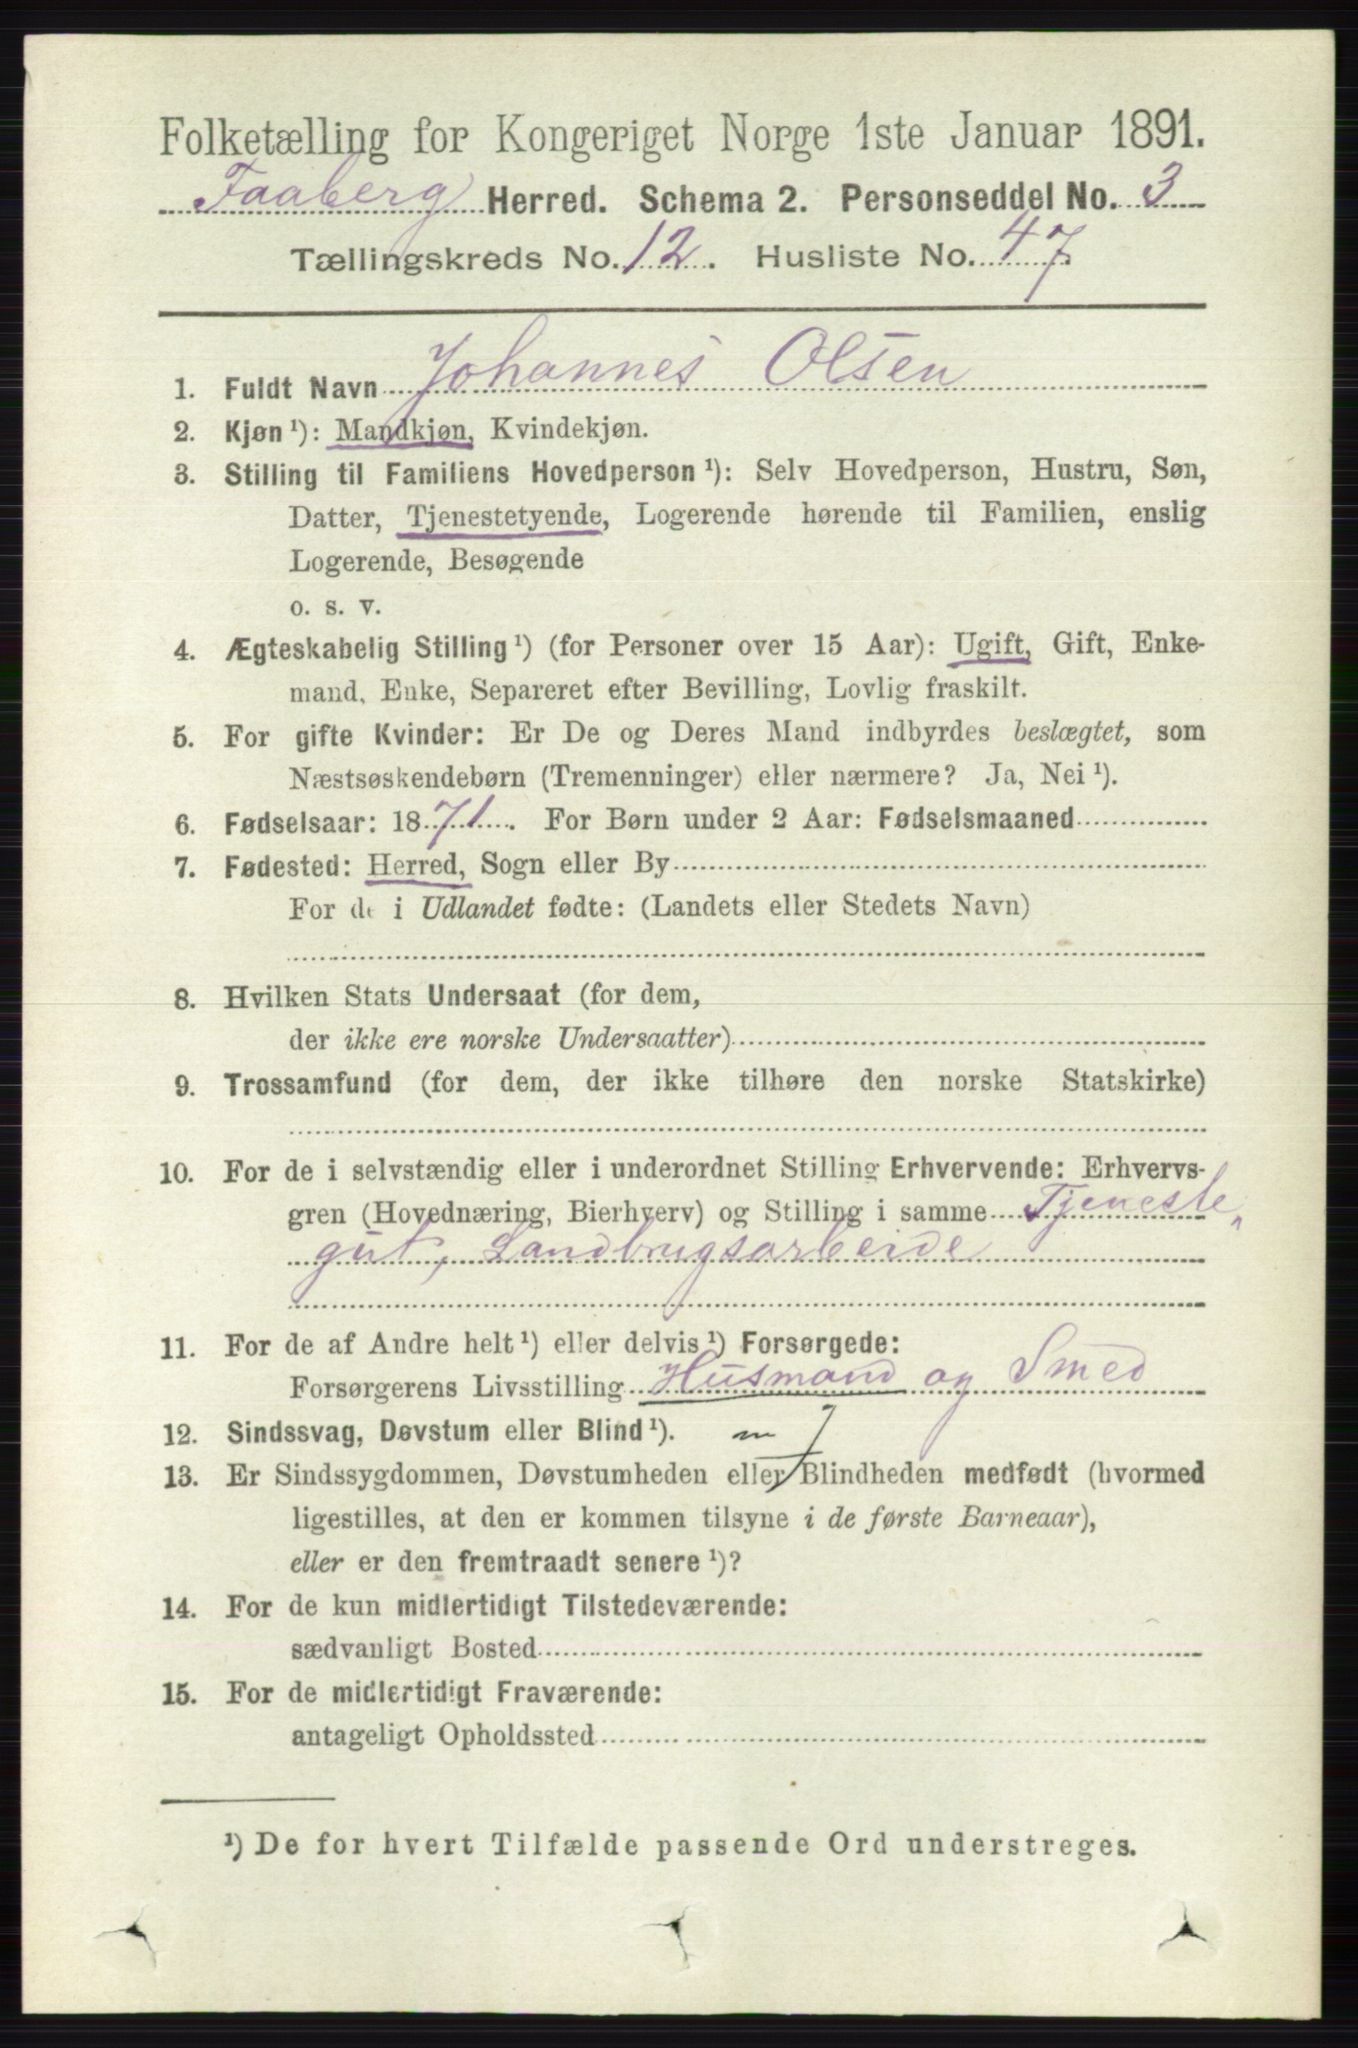 Folketælling for Kongeriget Norge 1ste Januar 1891.
Faaberg Herred. Schema 2. Personseddel No. 3
Tællingskreds No. 12. Husliste No. 47
1. Fuldt Navn Johannes Olsen
2. Kjøn ¹): Mandkjøn, Kvindekjøn.
3. Stilling til Familiens Hovedperson ¹): Selv Hovedperson, Hustru, Søn,
Datter, Tjenestetyende, Logerende hørende til Familien, enslig
Logerende, Besøgende
o. s. v.
4. Ægteskabelig Stilling ¹) (for Personer over 15 Aar): Ugift, Gift, Enke-
mand, Enke, Separeret efter Bevilling, Lovlig fraskilt.
5. For gifte Kvinder: Er De og Deres Mand indbyrdes beslægtet, som
Næstsøskendebørn (Tremenninger) eller nærmere? Ja, Nei ¹).
6. Fødselsaar: 1871. For Børn under 2 Aar: Fødselsmaaned
7. Fødested: Herred, Sogn eller By
For de i Udlandet fødte: (Landets eller Stedets Navn)
8. Hvilken Stats Undersaat (for dem,
der ikke ere norske Undersaatter)
9. Trossamfund (for dem, der ikke tilhøre den norske Statskirke)
10. For de i selvstændig eller i underordnet Stilling Erhvervende: Erhvervs-
gren (Hovednæring, Bierhverv) og Stilling i samme Tjeneste„
gut, Landbrugsarbeide
11. For de af Andre helt ¹) eller delvis ¹) Forsørgede:
Forsørgerens Livsstilling Husmand og Smed
12. Sindssvag, Døvstum eller Blind ¹).
13. Er Sindssygdommen, Døvstumheden eller Blindheden medfødt (hvormed
ligestilles, at den er kommen tilsyne i de første Barneaar),
eller er den fremtraadt senere ¹)?
14. For de kun midlertidigt Tilstedeværende:
sædvanligt Bosted
15. For de midlertidigt Fraværende:
antageligt Opholdssted
¹) De for hvert Tilfælde passende Ord understreges.